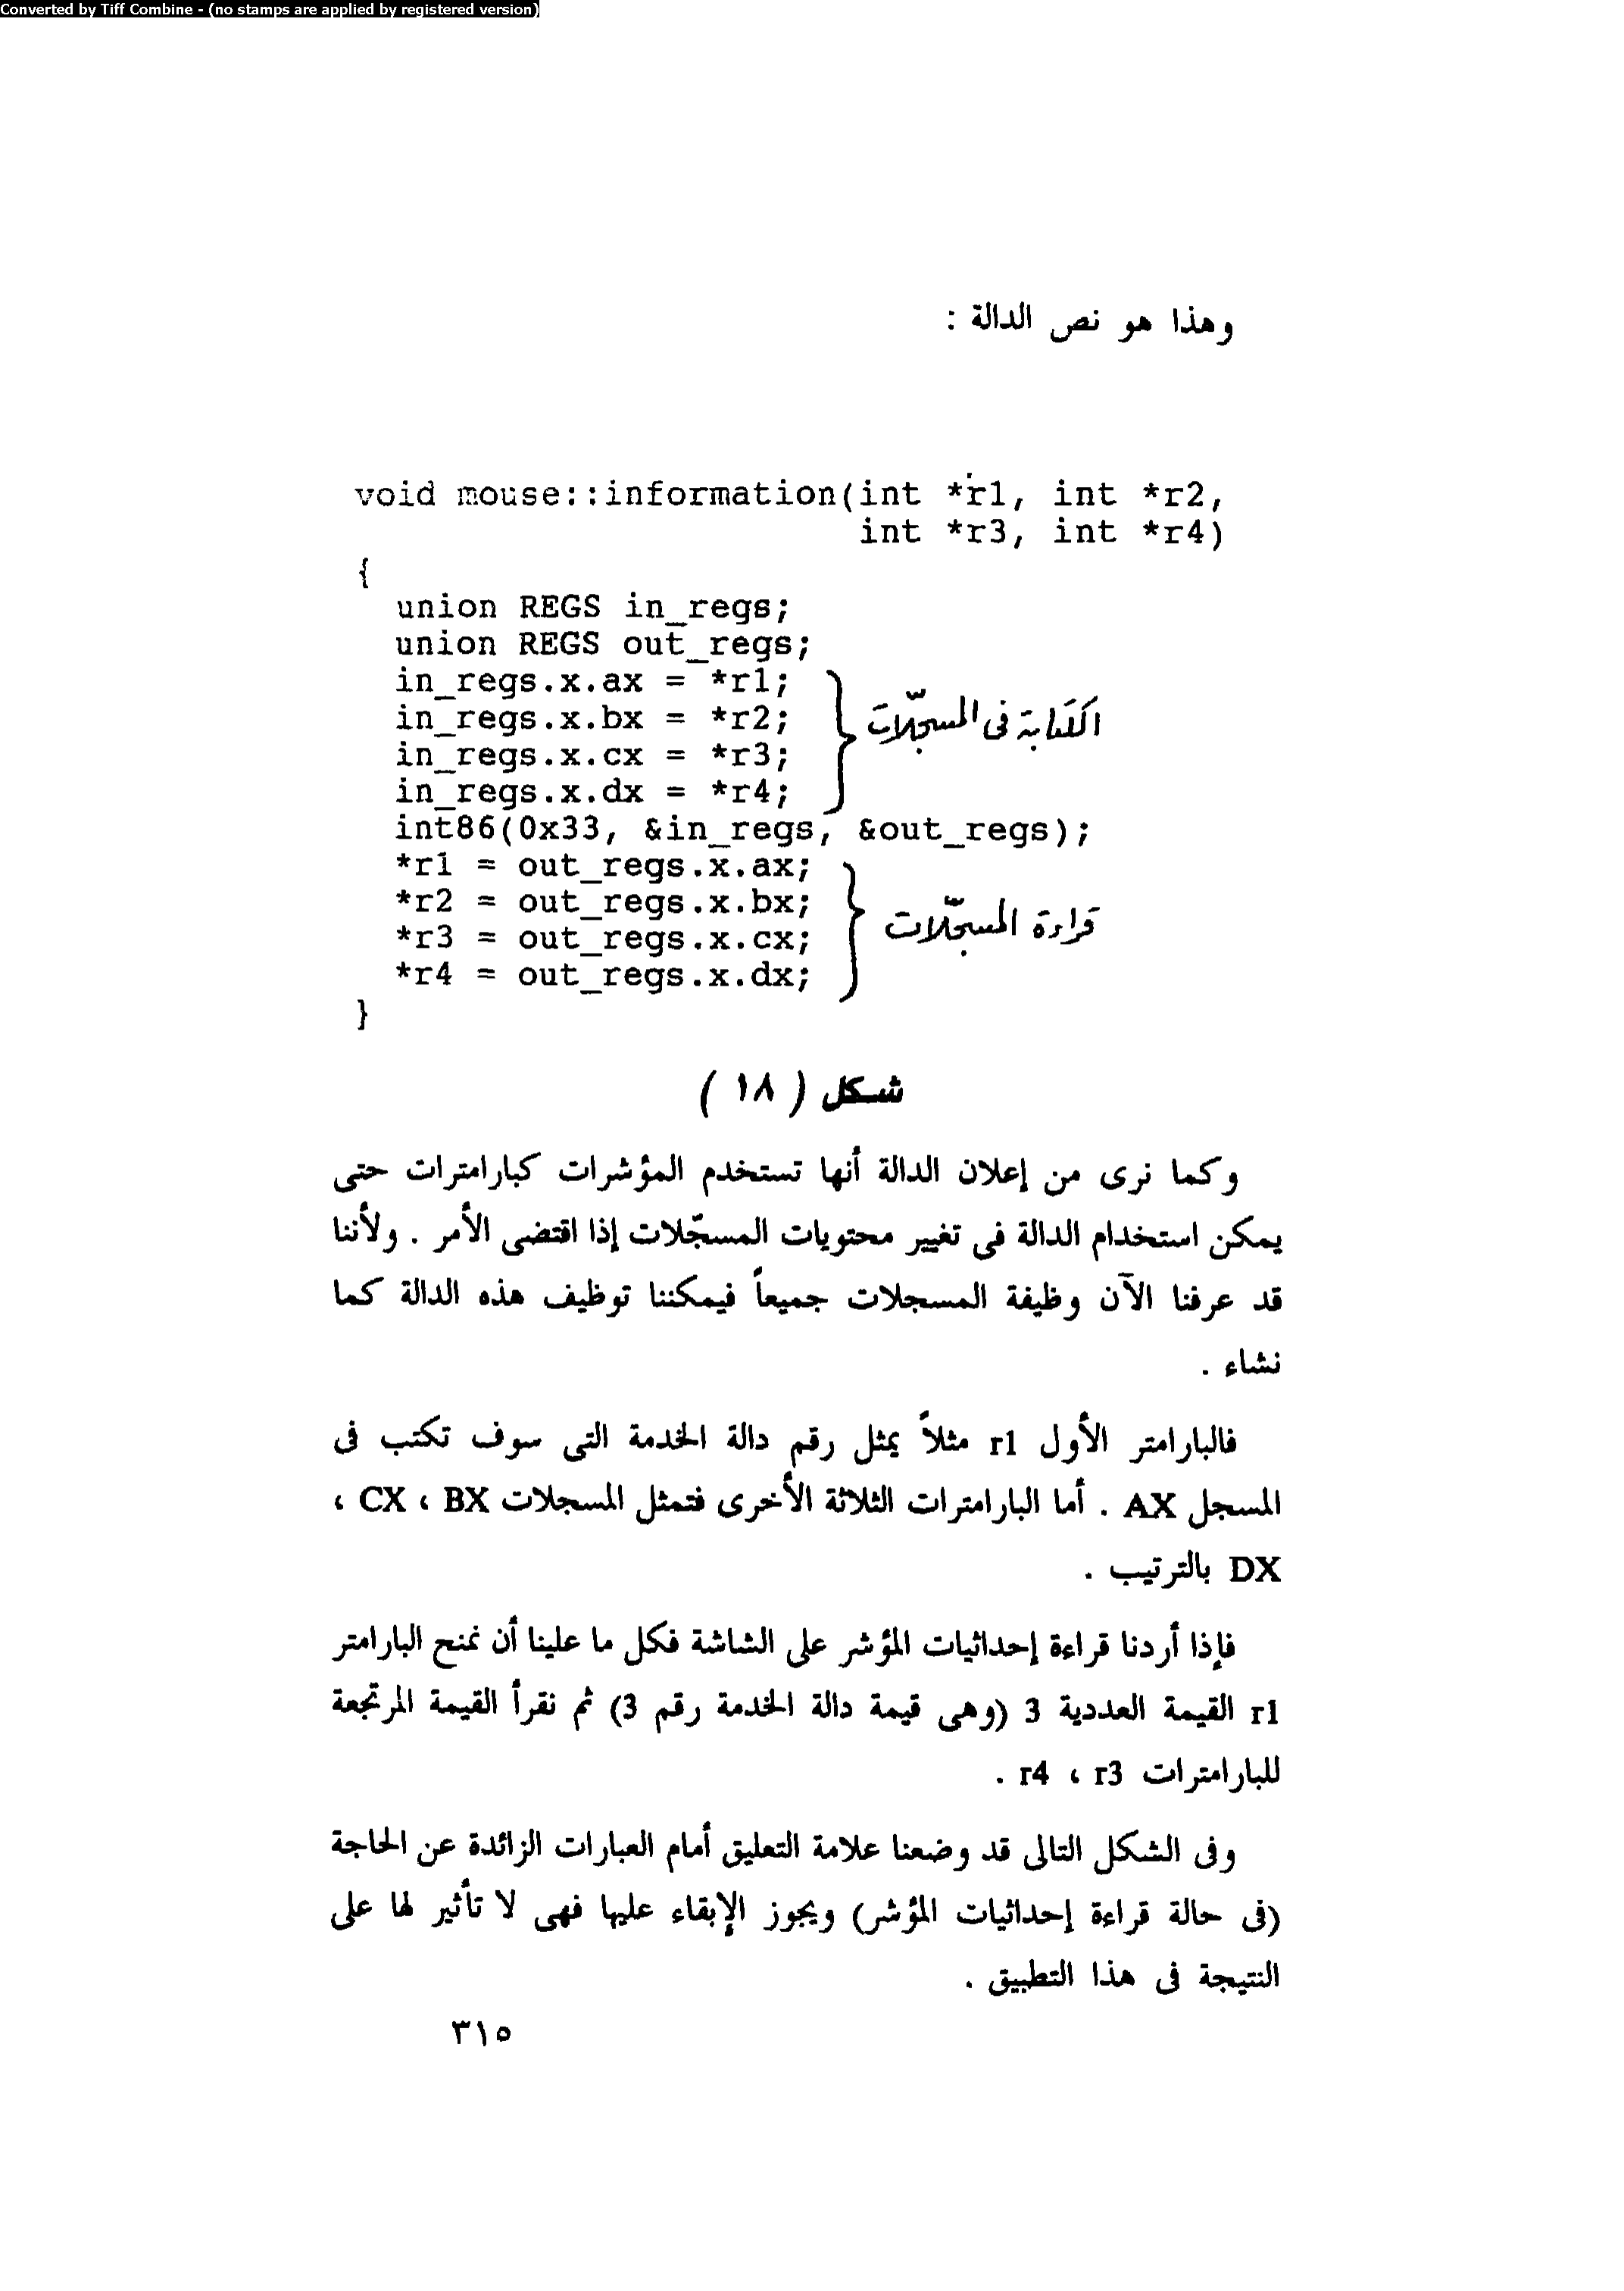 Converted by Tiff Combine - (no stamps are applied by registered version)
وهذا هو نص الدالة :
void mouse::information(int *r1, int *r2,
int *r3, int *r4)
{
union REGS in_regs;
union REGS out_regs;
in_regs.x.ax = *r1;
in_regs.x.bx = *r2;
الكتابة فى المسجّلات
in_regs.x.cx = *r3;
in_regs.x.dx = *r4;
int86(0x33, &in_regs, &out_regs);
*r1 = out_regs.x.ax;
*r2 = out_regs.x.bx;
قراءة المسجّلات
*r3 = out_regs.x.cx;
*r4 = out_regs.x.dx;
}
شكل ( ١٨ )
وكما نرى من إعلان الدالة أنها تستخدم المؤشرات كبارامترات حتى
يمكن استخدام الدالة فى تغيير محتويات المسجّلات إذا اقتضى الأمر . ولأننا
قد عرفنا الآن وظيفة المسجلات جميعاً فيمكننا توظيف هذه الدالة كما
نشاء .
فالبارامتر الأول r1 مثلاً يمثل رقم دالة الخدمة التى سوف تكتب فى
المسجل AX . أما البارامترات الثلاثة الأخرى فتمثل المسجلات BX ، CX ،
DX بالترتيب .
فإذا أردنا قراءة إحداثيات المؤشر على الشاشة فكل ما علينا أن نمنح البارامتر
r1 القيمة العددية 3 (وهى قيمة دالة الخدمة رقم 3) ثم نقرأ القيمة المرتجعة
للبارامترات r3 ، r4 .
وفى الشكل التالى قد وضعنا علامة التعليق أمام العبارات الزائدة عن الحاجة
(فى حالة قراءة إحداثيات المؤشر) ويجوز الإبقاء عليها فهى لا تأثير لها على
النتيجة فى هذا التطبيق .
٣١٥